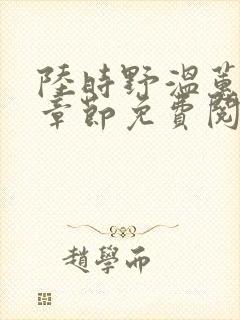 陸時野溫蔥
章節免費閱
趙學而